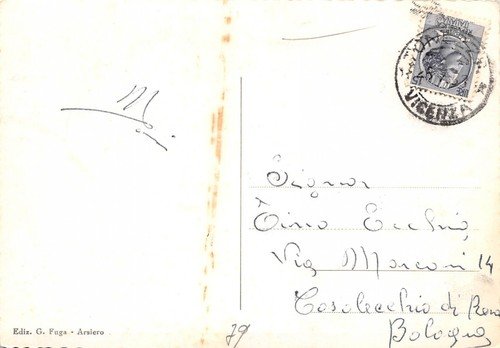 VICENZA
Signor
Tino Ecchio
Via Marconi 14
Casalecchio di Reno
Bologna
Ediz. G. Fuga - Arsiero
79